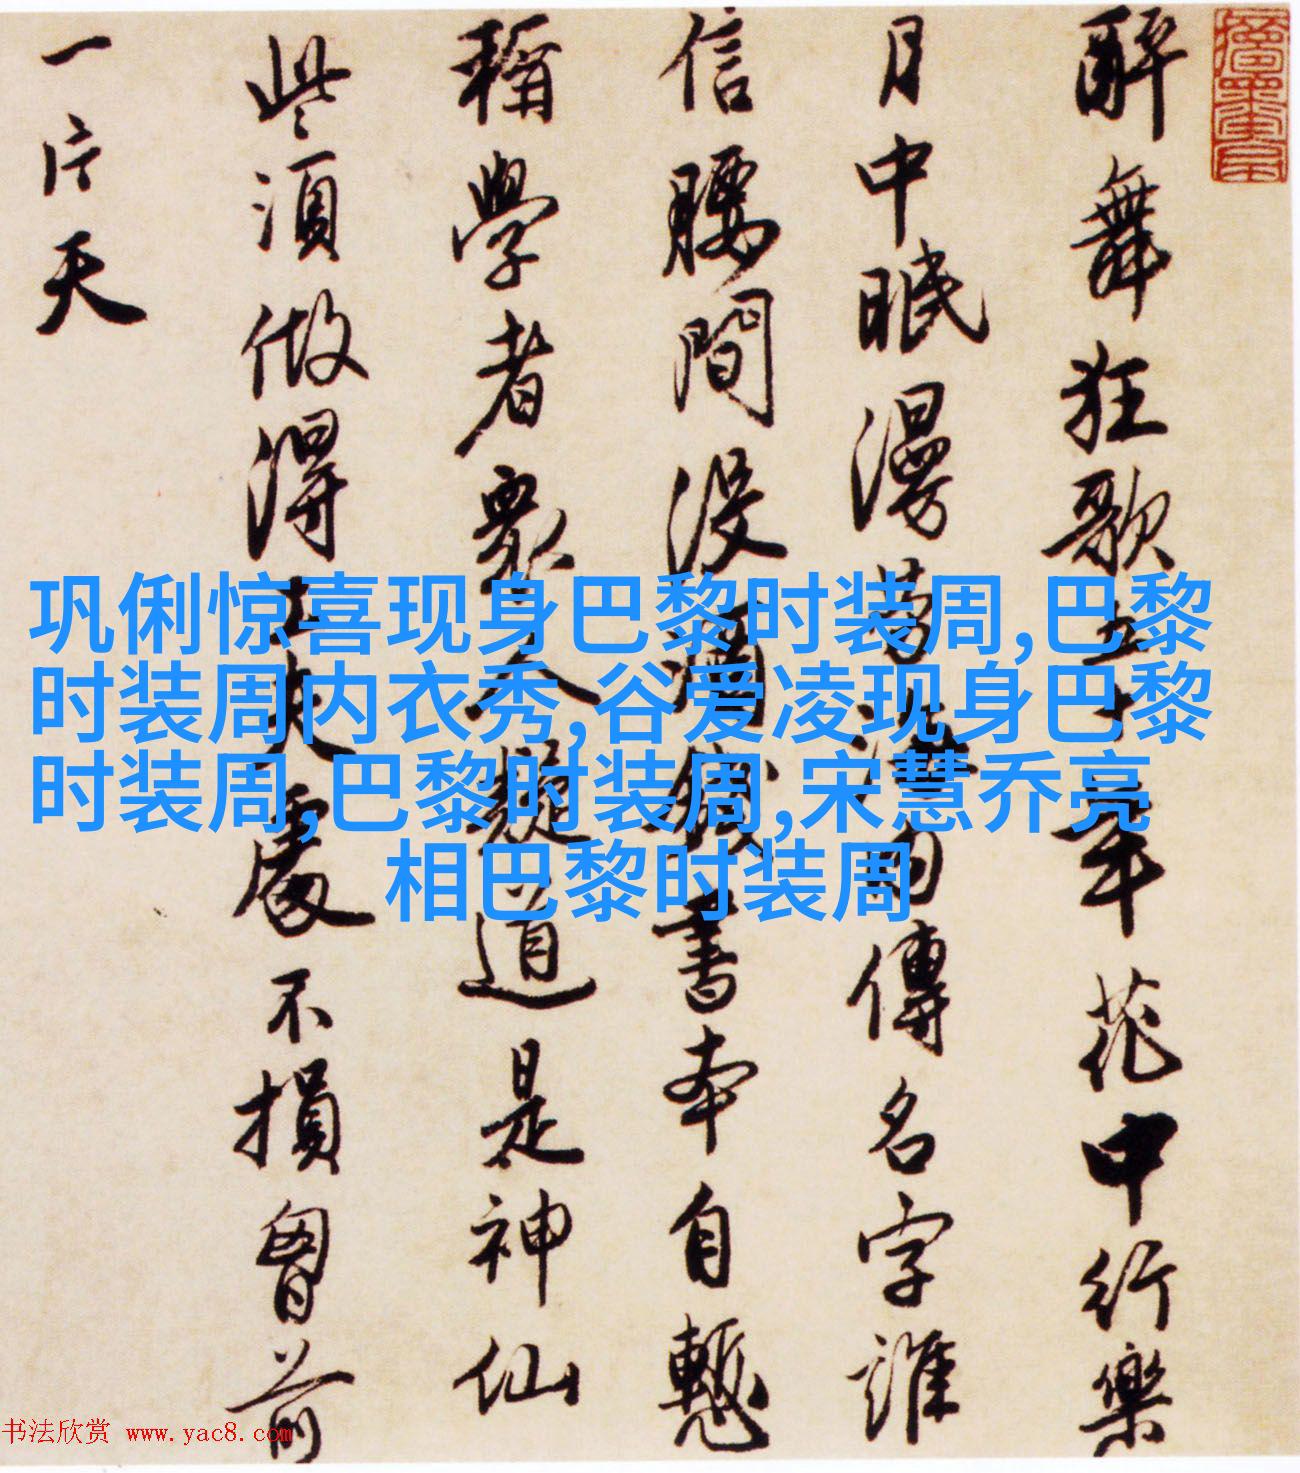 酔舞狂歌五十年花中行樂
月中眠漫勞海内傳名字誰
信腰間没酒錢書本自慙
稱學者衆人疑道是神仙
些須做得工夫處不損胷前
一片天
巩俐惊喜现身巴黎时装周,巴黎
时装周内衣秀,谷爱凌现身巴黎
时装周,巴黎时装周,宋慧乔亮
相巴黎时装周
书法欣赏 www.yac8.com